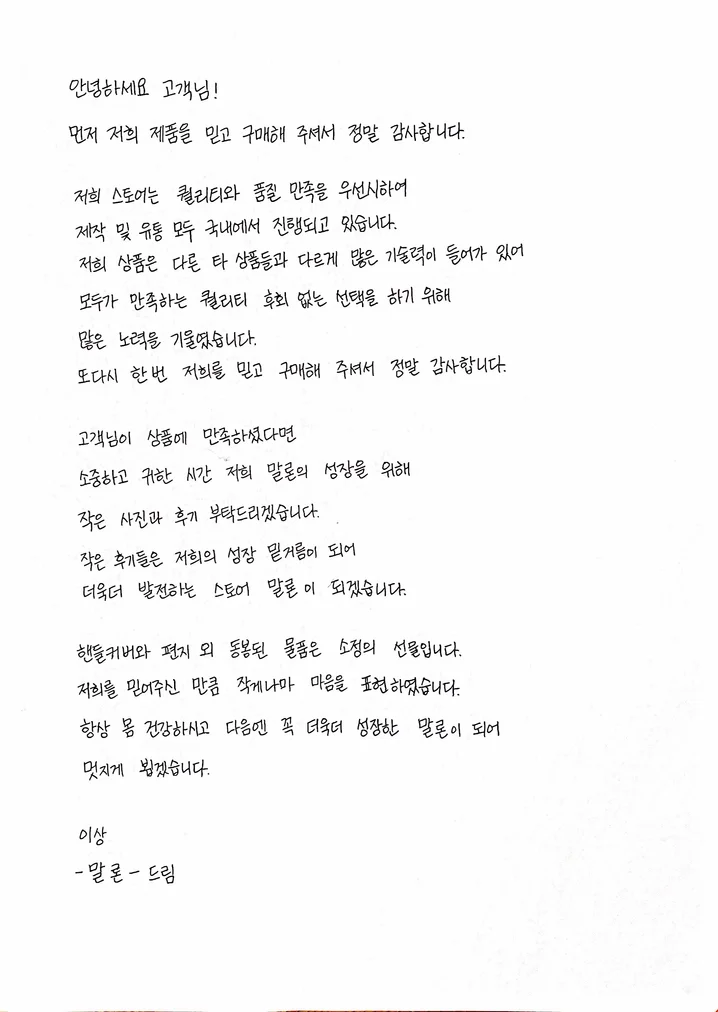 안녕하세요 고객님!
먼저 저희 제품을 믿고 구매해 주셔서 정말 감사합니다.
저희 스토어는 퀄리티와 품질 만족을 우선시하여
제작 및 유통 모두 국내에서 진행되고 있습니다.
저희 상품은 다른 타 상품들과 다르게 많은 기술력이 들어가 있어
모두가 만족하는 퀄리티 후회 없는 선택을 하기 위해
많은 노력을 기울였습니다.
또다시 한번 저희를 믿고 구매해 주셔서 정말 감사합니다.
고객님이 상품에 만족하셨다면
소중하고 귀한 시간 저희 말론의 성장을 위해
작은 사진과 후기 부탁드리겠습니다.
작은 후기들은 저희의 성장 밑거름이 되어
더욱더 발전하는 스토어 말론이 되겠습니다.
핸들커버와 편지 외 동봉된 물품은 소정의 선물입니다.
저희를 믿어주신 만큼 작게나마 마음을 표현하였습니다.
항상 몸 건강하시고 다음엔 꼭 더욱더 성장한 말론이 되어
멋지게 뵙겠습니다.
이상
-말론- 드림